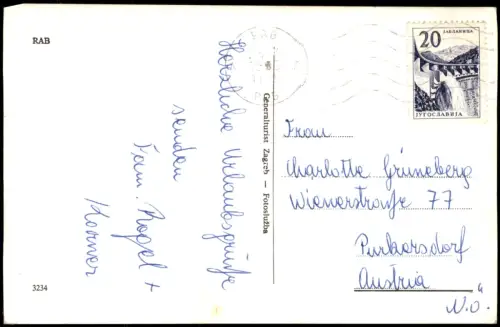 RAB
Herzliche Urlaubsgrüße
senden
Fam. Kogel +
Korner
3234
Generalturist Zagreb — Fotoslužba
RAB
20
JАБЛАНИЦА
ЈУГОСЛАВИЈА
Frau
Charlotte Grüneberg
Wienerstraße 77
Purkersdorf
Austria
N.Ö.